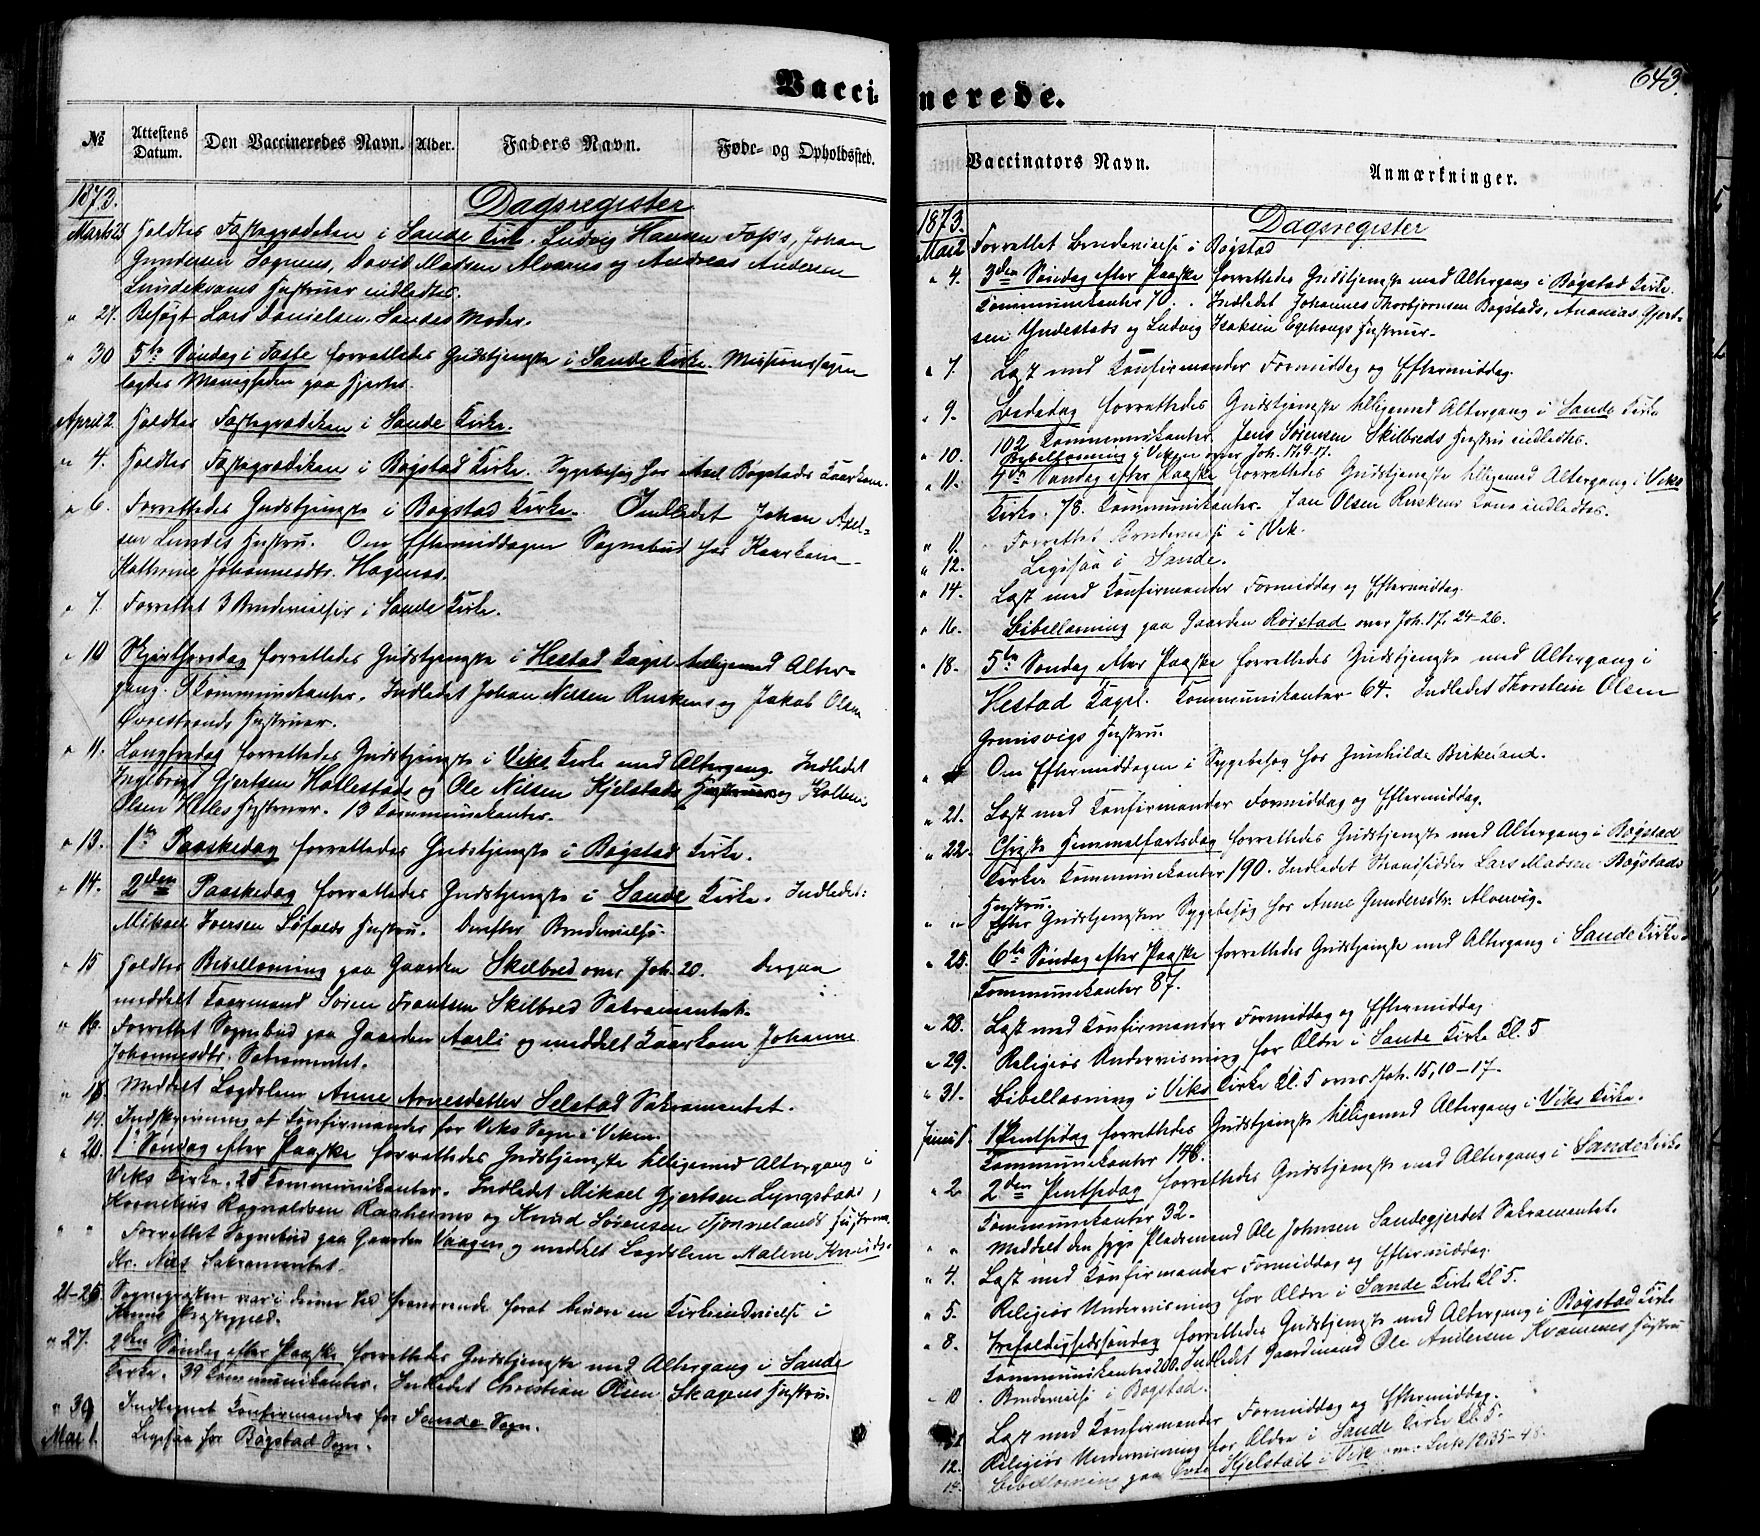 643.
Vacci-
nerede.
№
Attestens Datum.
Den Vaccineredes Navn.
Alder.
Faders Navn.
Føde- og Opholdssted.
Vaccinators Navn.
Anmærkninger.
1873. Dagsregister
Marts 25 Holdtes Fastepræken i Sande Kirke. Ludvig Hansen Foss's, Johan
Gundersen Sognens, David Madsen Alværns og Andreas Andersen
Lundekvams Hustruer indledtes.
" 27. Besøgt Lars Danielsen Sandes Moder.
" 30 5te Søndag i Faste forrettedes Gudstjeneste i Sande Kirke. Missionssagen
lagdes Menigheden paa Hjertet.
April 2. Holdtes Fastepræken i Sande Kirke.
" 4. Holdtes Fastepræken i Bøgstad Kirke. Sygebesøg hos Axel Bøgstads Kaarkone.
" 6. Forrettedes Gudstjeneste i Bøgstad Kirke. Indledet Johan Axel-
sen Hustru. Om Eftermiddagen Sognebud hos Kaarkone
Kathrine Johannesdtr. Hagenæs.
" 7. Forrettet 3 Brudevielser i Sande Kirke.
" 10 Skjærthorsdag forrettedes Gudstjeneste i Hestad Kapel tilligemed Alter-
gang. 9 Kommunikanter. Indledet Johan Nilsen Ruskens og Jakob Olsen
Øvrestrands Hustruer.
" 11. Langfredag forrettedes Gudstjeneste i Viks Kirke med Altergang. Indledet
Ingebrigt Gjertsen Hallestads og Ole Nilsen Kjelstads Hustruer og
Olsen Hustruer. 13 Kommunikanter.
" 13. 1ste Paaskedag forrettedes Gudstjeneste i Bøgstad Kirke.
" 14. 2den Paaskedag forrettedes Gudstjeneste i Sande Kirke. Indledet:
Mikael Iversen Løfolds Hustru. Derefter Brudevielse.
" 15 Holdtes Bibellæsning paa Gaarden Skilbred over Joh. 20. Dergaa
meddelt Kaarmand Søren Frantsen Skilbred Sakramentet.
" 16. Forrettet Sognebud paa Gaarden Aarli og meddelt Kaarkone Johanne
Johannesdtr. Sakramentet.
" 18. Meddelt Lægdslem Anne Arnesdatter Selstad Sakramentet.
19. Indskrivning af Konfirmander for Viks Sogn i Viken.
" 20. 1ste Søndag efter Paaske forrettedes Gudstjeneste tilligemed Altergang i
Viks Kirke. 25 Kommunikanter. Indledet Mikael Gjertsen Lyngstads,
Kornelius Ragnaldsen og Knud Sørensen Tjønnelands Hustruer.
" " Forrettet Sognebud paa Gaarden Vaagen og meddelt Lægdslem Malene Knuds-
dtr. Næs Sakramentet.
21-25 Sognepræsten var i denne Tid fraværende forat bivære en Kirkeindvielse i
Kinns Præstegjeld.
" 27. 2den Søndag efter Paaske forrettedes Gudstjeneste med Altergang i Sande
Kirke. 39 Kommunikanter. Indledet Christian Olsen Skagens Hustru.
" 30 Indtegnet Konfirmander for Sande Sogn.
Mai 1. Ligesaa for Bøgstad Sogn.
1873. Dagsregister
Mai 2 Forrettet Brudevielse i Bøgstad
" 4. 3die Søndag efter Paaske forrettedes Gudstjeneste med Altergang i Bøgstad Kirke.
Kommunikanter 70. Indledet Johannes Thorbjørnsen Bøgstads, Ananias Gjert-
sen Yndestads og Ludvig Isaksen Egehougs Hustruer.
" 7. Læst med Konfirmander Formiddag og Eftermiddag.
" 9. Bededag forrettedes Gudstjeneste tilligemed Altergang i Sande Kirke
102 Kommunikanter. Jens Sørensen Skilbreds Hustru indledtes.
" 10. Bibellæsning i Viken over Joh. 17,9-17.
" 11. 4de Søndag efter Paaske forrettedes Gudstjeneste tilligemed Altergang i Viks
Kirke. 78. Kommunikanter. Jan Olsen Ruskens Kone indledtes.
" 11. Forrettet Brudevielse i Vik.
" 12. Ligesaa i Sande.
" 14. Læst med Konfirmander Formiddag og Eftermiddag.
" 16. Bibellæsning paa Gaarden Rørstad over Joh. 17, 24-26.
" 18. 5te Søndag efter Paaske forrettedes Gudstjeneste med Altergang i
Hestad Kapel. Kommunikanter 64. Indledet Thorstein Olsen
Grimsvigs Hustru.
Om Eftermiddagen i Sygebesøg hos Gunhilde Birkeland.
" 21. Læst med Konfirmander Formiddag og Eftermiddag.
" 22. Christi Himmelfartsdag forrettedes Gudstjeneste med Altergang i Bøgstad
Kirke. Kommunikanter 190. Indledet Strandsidder Lars Madsen Bøgstads
Hustru.
" " Efter Gudstjenesten Sygebesøg hos Anne Gundersdtr. Alvevig.
" 25. 6te Søndag efter Paaske forrettedes Gudstjeneste med Altergang i Sande Kirke.
Kommunikanter 87.
" 28. Læst med Konfirmander Formiddag og Eftermiddag
" 29. Religiøs Undervisning for Ældre i Sande Kirke Kl. 5
" 31. Bibellæsning i Viks Kirke Kl. 5 over Joh. 15, 10-17.
Juni 1. 1ste Pintsedag forrettedes Gudstjeneste tilligemed Altergang i Viks Kirke.
Kommunikanter 148.
" 2 2den Pintsedag forrettedes Gudstjeneste med Altergang i Sande Kirke
Kommunikanter 32.
" " Meddelt den syge Pladsmand Ole Johnsen Sandegjerdet Sakramentet.
" 4. Læst med Konfirmander Formiddag og Eftermiddag.
" 5. Religiøs Undervisning for Ældre i Sande Kirke Kl 5.
" 8. Trefoldighedssøndag forrettedes Gudstjeneste med Altergang i Bøgstad Kirke
Kommunikanter 200. Indledet Gaardmand Ole Andersen Kvamens Hustru
" 10 Brudevielse i Bøgstad.
11 Læst med Konfirmander Formiddag og Eftermiddag.
12. Religiøs Undervisning for Ældre i Sande Kirke Kl. 5.
Bibellæsning paa Øvre Kjelstad i Vik over Luk 12,35-48.